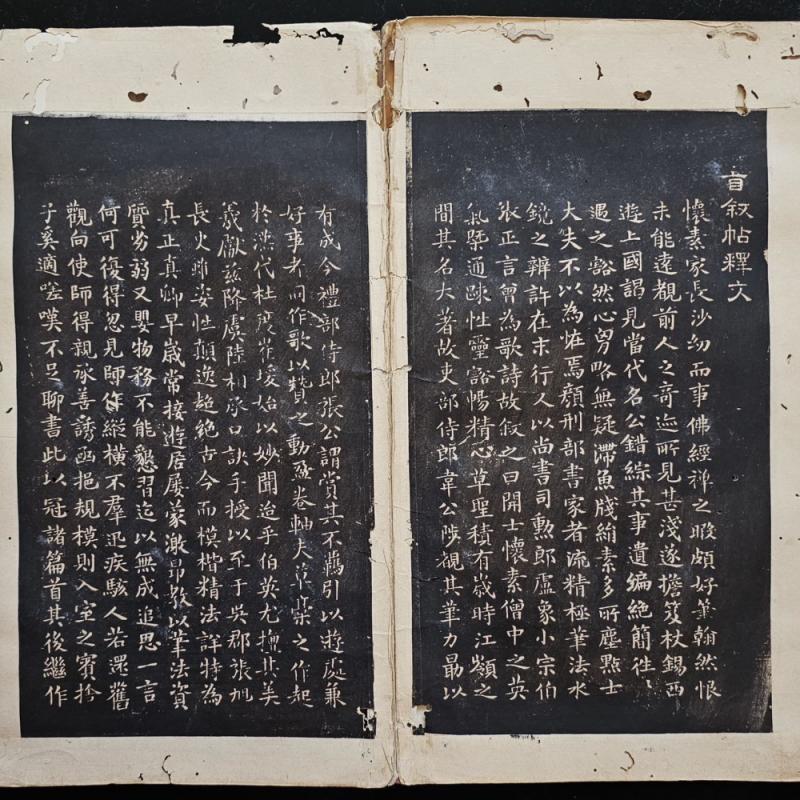 自叙帖釋文
懷素家長沙幼而事佛經禪之暇頗好筆翰然恨
未能遠覩前人之奇迹所見甚淺遂擔笈杖錫西
遊上國謁見當代名公錯綜其事遺編絶簡往〻
遇之豁然心胷略無疑滯魚牋絹素多所塵點士
大夫不以為恠焉顏刑部書家者流精極筆法水
鏡之辨許在末行又以尚書司勳郎盧象小宗伯
張正言曾為歌詩故叙之曰開士懷素僧中之英
氣槩通疎性靈豁暢精心草聖積有歲時江嶺之
間其名大著故吏部侍郎韋公陟覩其筆力勗以
有成今禮部侍郎張公謂賞其不羈引以遊處兼
好事者同作歌以贊之動盈卷軸夫草藁之作起
於漢代杜度崔瑗始以妙聞迨乎伯英尤擅其美
羲獻茲降虞陸相承口訣手授以至于吳郡張旭
長史雖姿性顛逸超絶古今而模楷精法詳特為
真正真卿早歲常接遊居屢蒙激昂教以筆法資
質劣弱又嬰物務不能懇習迄以無成追思一言
何可復得忽見師作縱橫不羣迅疾駭人若還舊
觀向使師得親承善誘函挹規模則入室之賓捨
子奚適嗟嘆不足聊書此以冠諸篇首其後繼作